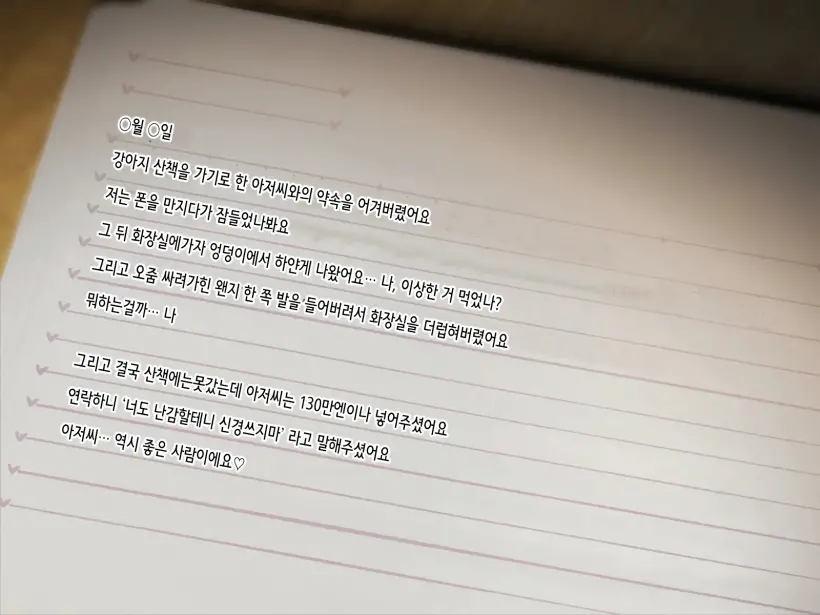 ○월 ○일
강아지 산책을 가기로 한 아저씨와의 약속을 어겨버렸어요
저는 폰을 만지다가 잠들었나봐요
그 뒤 화장실에가자 엉덩이에서 하얀게 나왔어요… 나, 이상한 거 먹었나?
그리고 오줌 싸려가힌 왠지 한 쪽 발을 들어버려서 화장실을 더럽혀버렸어요
뭐하는걸까… 나
그리고 결국 산책에는못갔는데 아저씨는 130만엔이나 넣어주셨어요
연락하니 '너도 난감할테니 신경쓰지마' 라고 말해주셨어요
아저씨… 역시 좋은 사람이에요♡